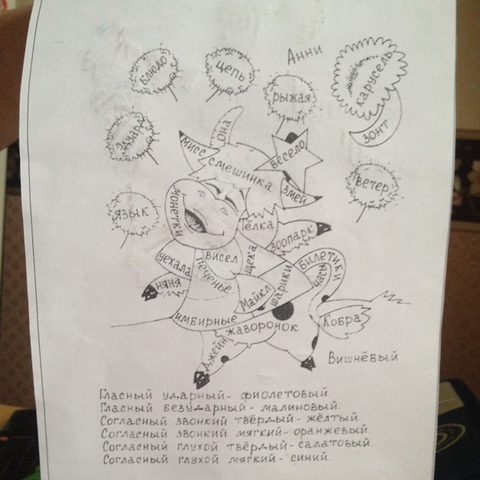 Анни
блюдо
цепь
рыжая
карусель
зонт
Эдуард
она
мисс
смешинка
весело
змей
ветер
язык
монетки
тёлка
зоопарк
уехала
висел
щека
билетики
няня
печенье
часы
шарики
Майкл
имбирные
жаворонок
Кобра
джейн
Вишнёвый
Гласный ударный- фиолетовый.
Гласный безударный- малиновый.
Согласный звонкий твёрдый- жёлтый.
Согласный звонкий мягкий- оранжевый.
Согласный глухой твёрдый- салатовый.
Согласный глухой мягкий- синий.